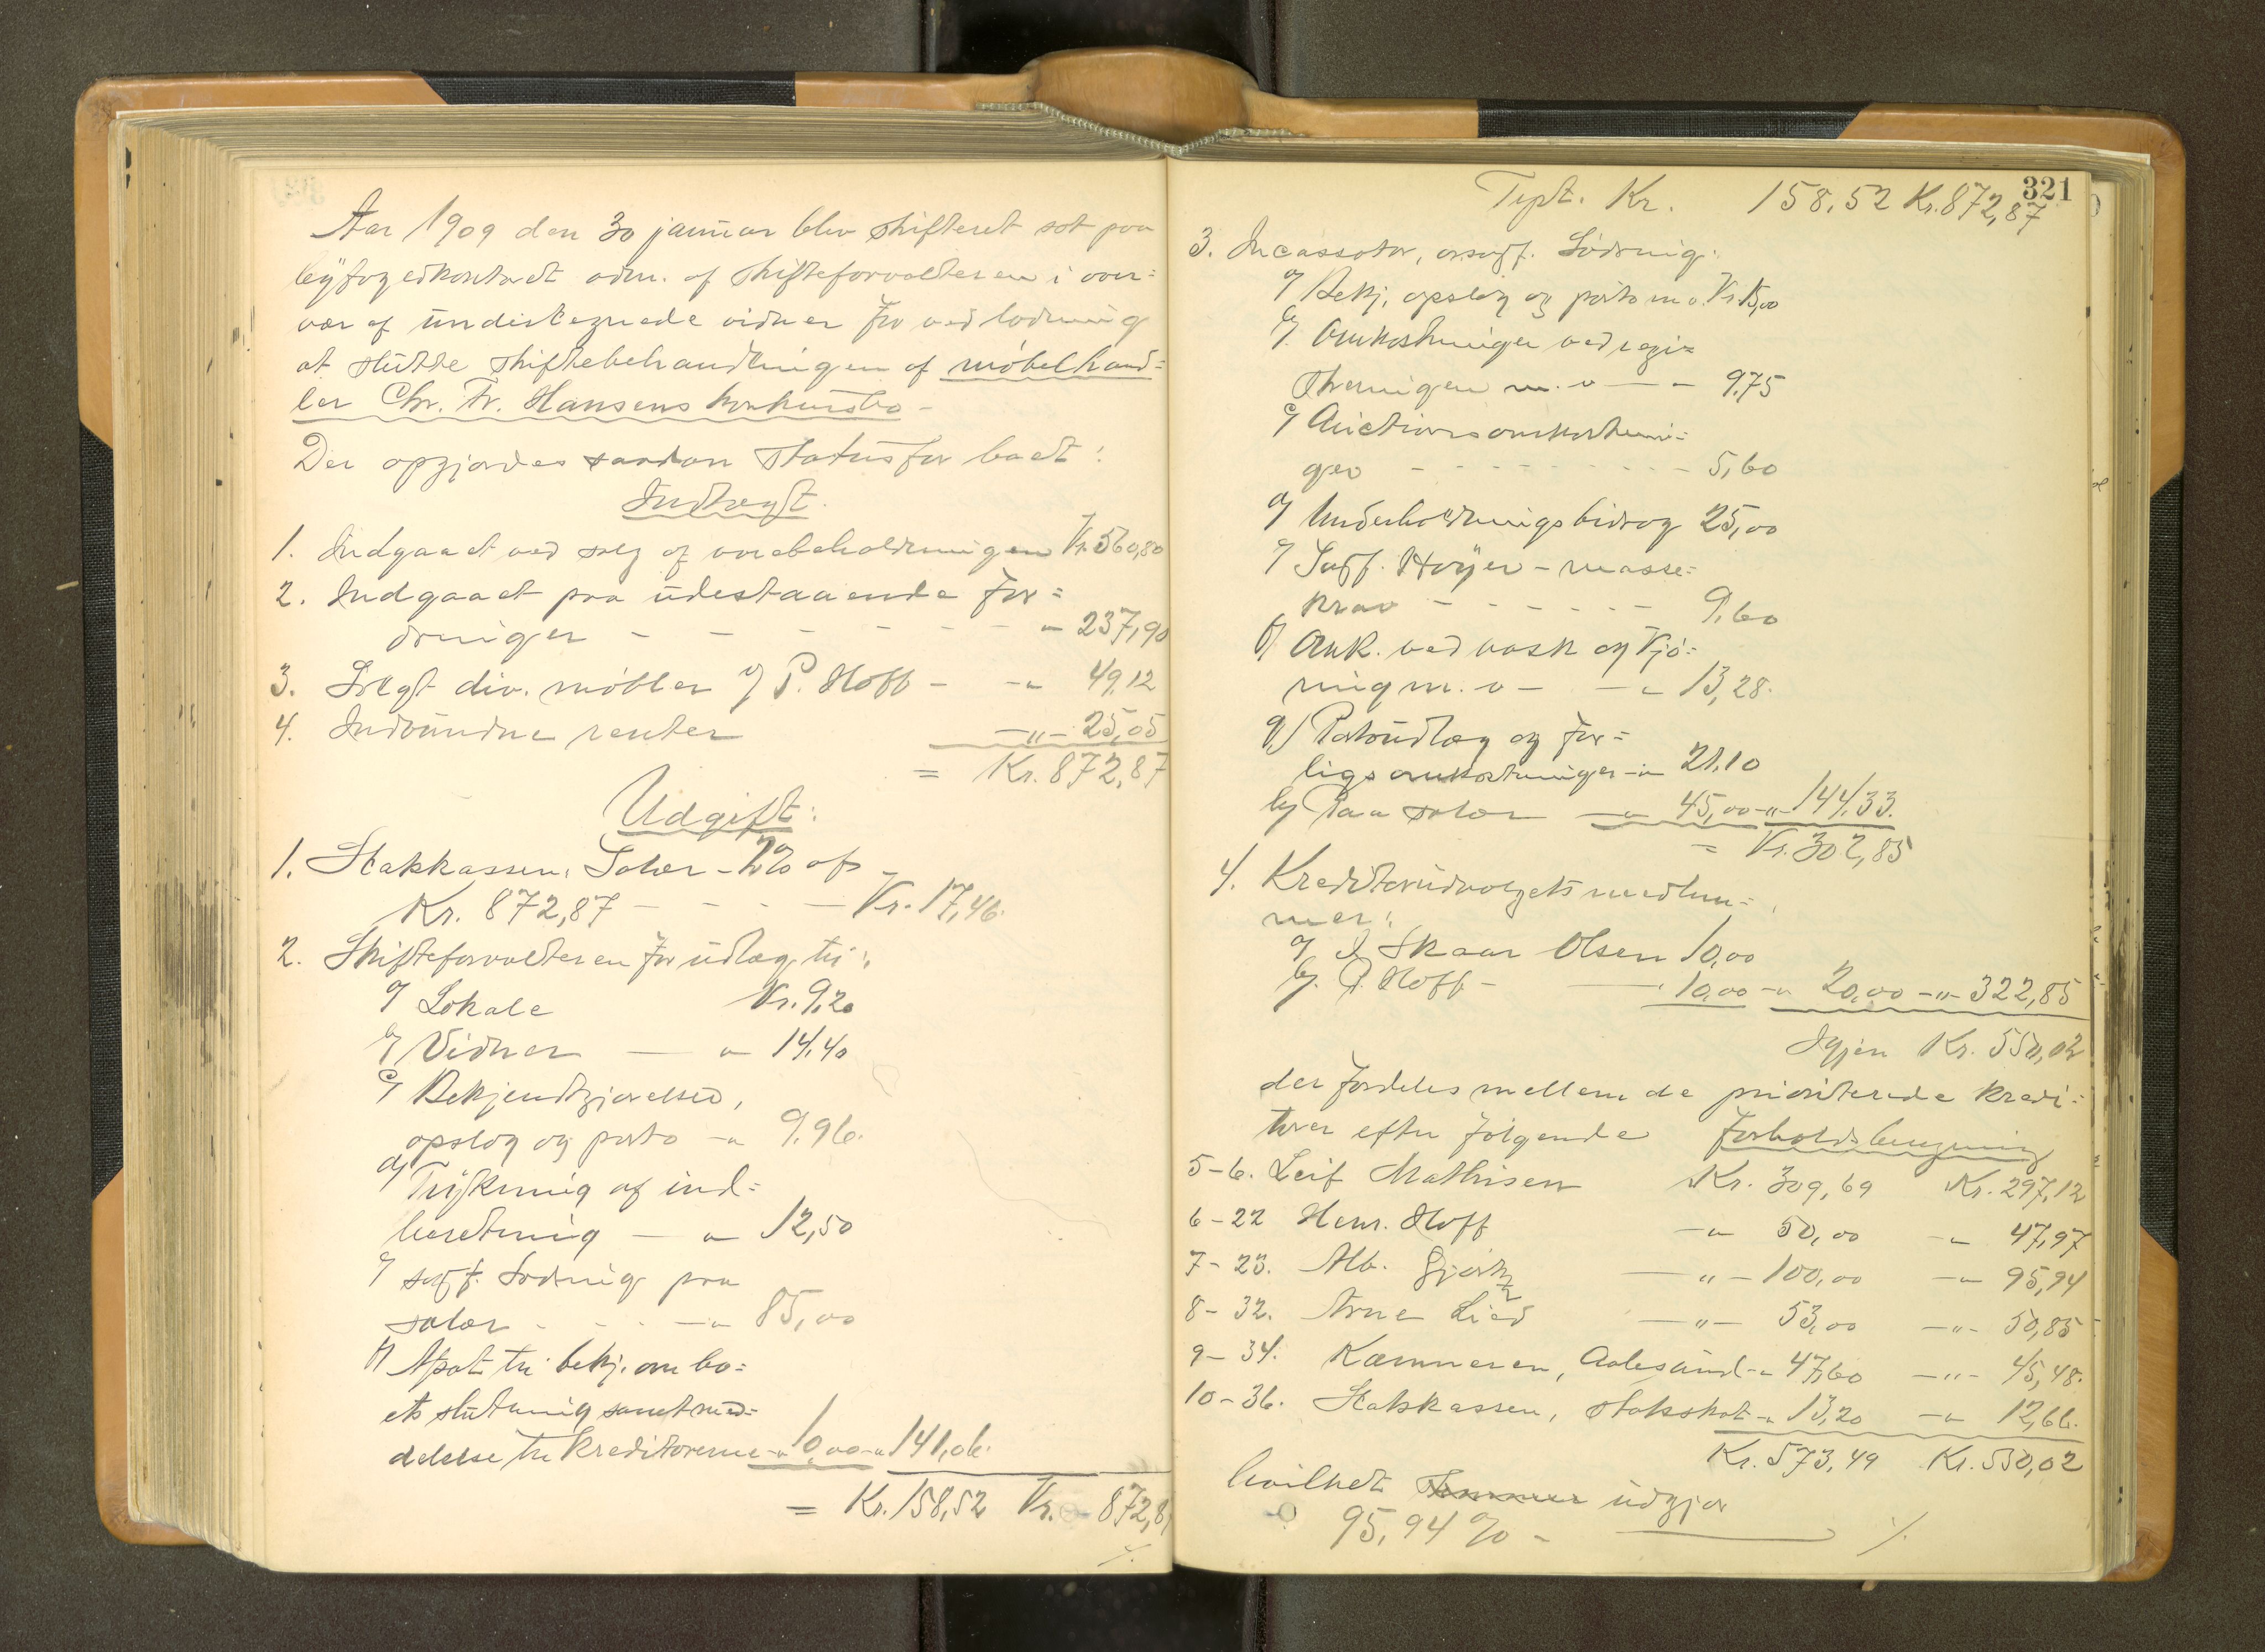 Aar 1909 den 30 januar blev skifteret sat paa
byfogedkontoret adm. af skifteforvalteren i over=
vær af undertegnede vidner for ved lodning
at slutte skiftebehandlingen af møbelhand=
ler Chr. Fr. Hansens konkursbo -
Der opgjordes saadan status for boet:
Indtægt.
1. Indgaaet ved salg af varebeholdningen Kr. 560,80
2. Indgaaet paa udestaaende for=
dringer - - - - - - - " 237,90
3. Solgt div. møbler af P. Hoff - - " 49,12
4. Indvundne renter - " - 25,05
= Kr. 872,87
Udgift:
1. Statskassen, Salær - 2% af
Kr. 872,87 - - - - Kr. 17,46.
2. Skifteforvalteren for udlæg til:
a) Lokale Kr. 9,20
b) Vidner - " 14,40
c) Bekjendtgjørelser,
opslag og porto - " 9,96.
d) Trykning af ind=
beretning - " 12,50
e) sagf. Lødning paa
salær - - - " 85,00
f) Afsat til bekj. om bo=
ets slutning samt med=
delelse til kreditorerne - " 10,00 - " 141,06.
= Kr. 158,52 Kr. 872,87
321
Tspt. Kr. 158,52 Kr. 872,87
3. Incassator, o.r.sagf. Lødning:
a) Bekj, opslag og porto m. v. Kr. 15,00
b) Omkostninger ved regi=
streringen m. v - - 9,75
c) Auctionsomkostnin=
ger - - - - - - - - - 5,60
d) Underholdningsbidrag 25,00
e) Sagf. Høyer - masse=
krav - - - - - - 9,60
f) Omk. ved vask og kjø=
ring m. v - - " 13,28.
g) Portoudlæg og for=
ligsomkostninger - " 21,10
h) Paa salær - " 45,00 - " 144,33.
= Kr. 302,85
4. Kreditorudvalgets medlem=
mer:
a) J. Skaar Olsen 10,00
b) P. Hoff - - " 10,00 - " 20,00 - " - 322,85
Igjen Kr. 550,02
der fordeles mellem de prioriterede kredi=
torer efter følgende forholdsberegning
5-6. Leif Mathisen Kr. 309,69 Kr. 297,12
6-22 Henr. Hoff - " 50,00 - " 47,97
7-23. Alb. Gjørtz - " - 100,00 - " 95,94
8-32. Arne Lied - " - 53,00 - " - 50,85
9-34. Kæmneren, Aalesund - " 47,60 - " - 45,48.
10-36. Statskassen, statsskat - " 13,20 - " 12,66.
Kr. 573,49 Kr. 550,02
hvilket udgjør
95,94 % - ./.